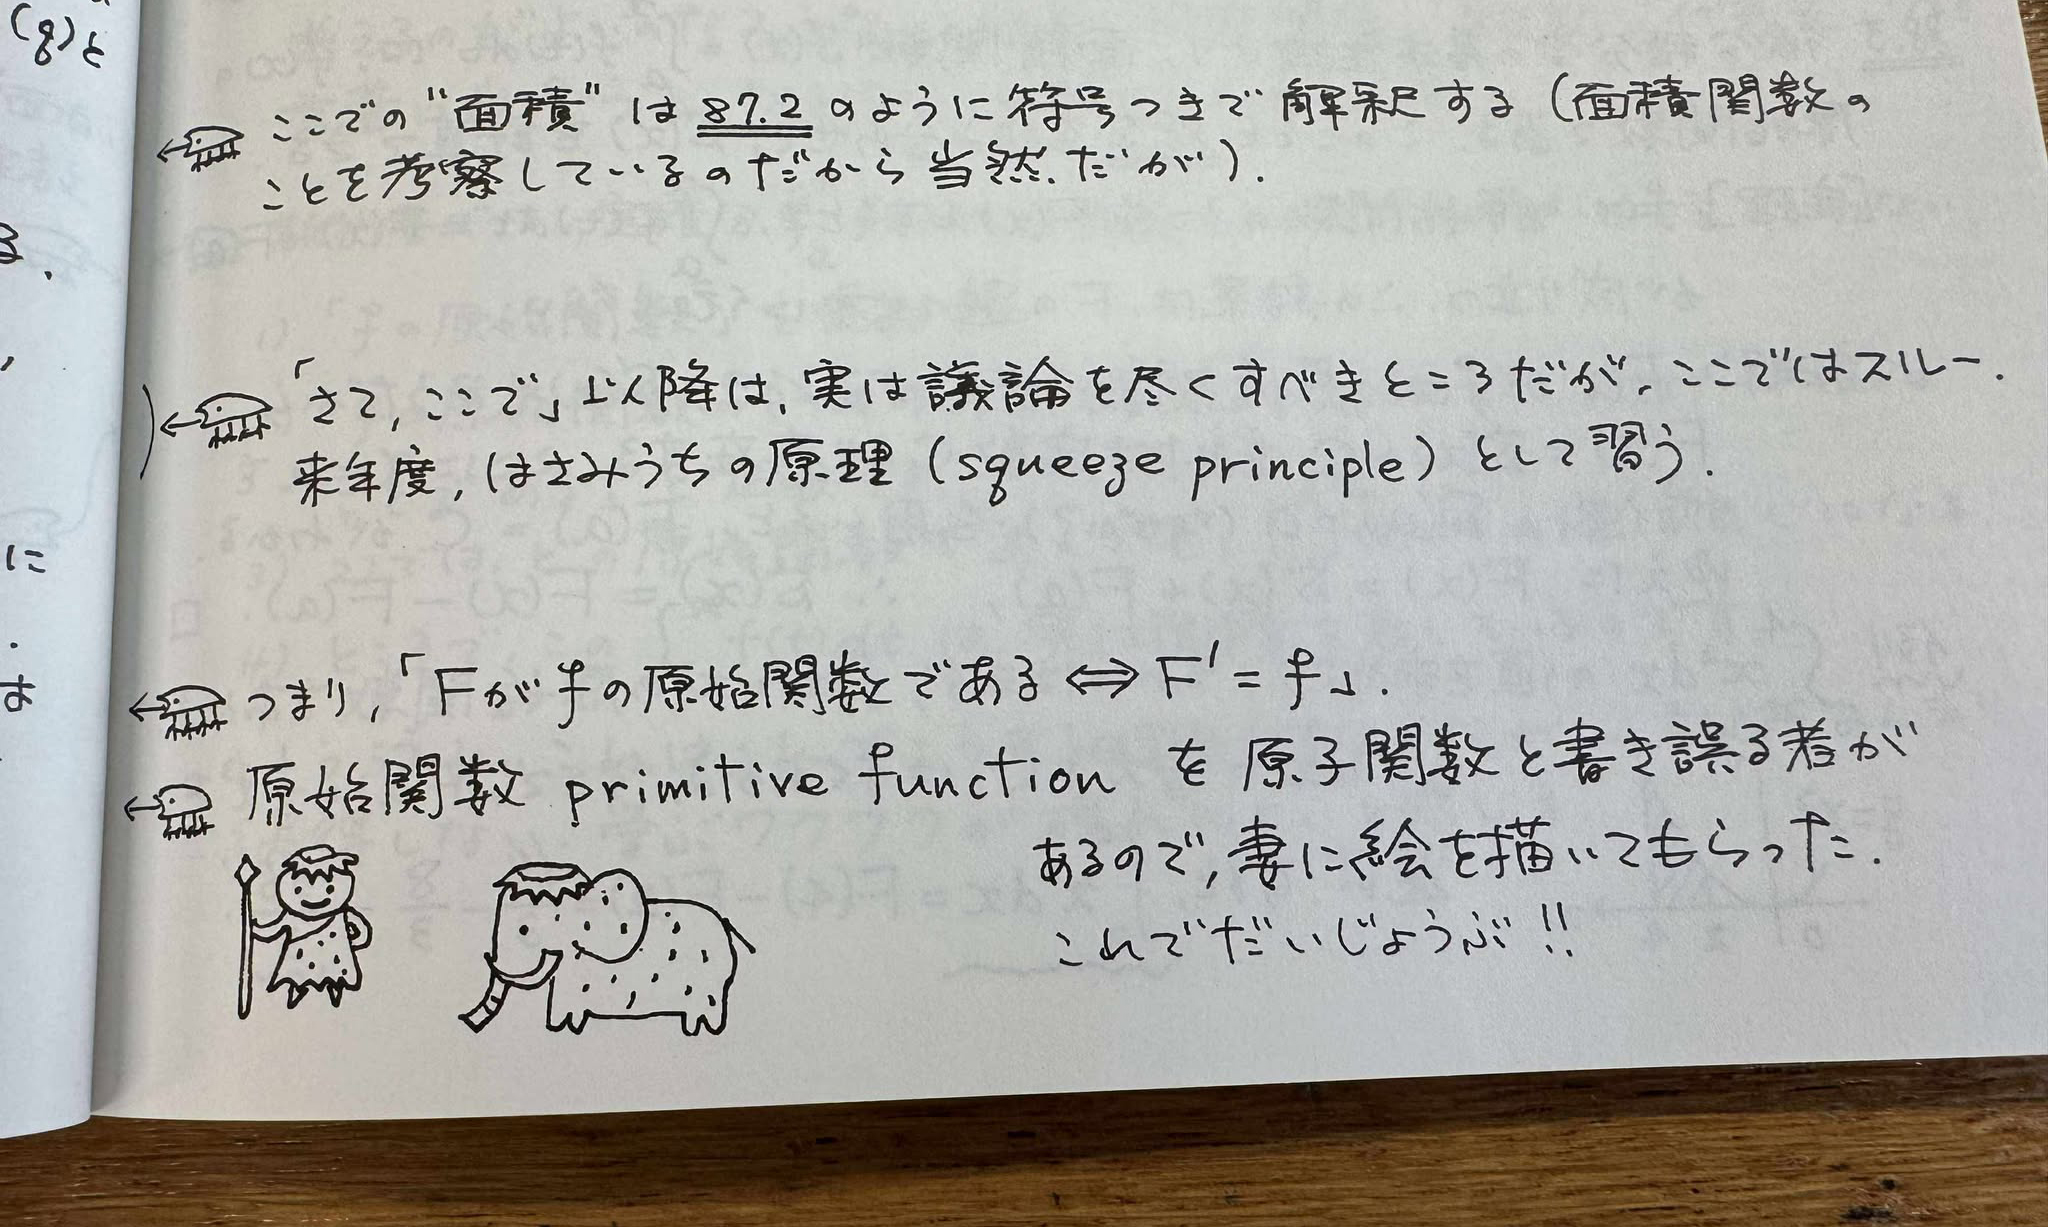 (g)と
る.
に
は
ここでの"面積"は 87.2 のように符号つきで解釈する(面積関数の
ことを考察しているのだから当然だが).
「さて,ここで」以降は,実は議論を尽くすべきところだが,ここではスルー.
来年度,はさみうちの原理(squeeze principle)として習う.
つまり,「Fがfの原始関数である ⇔ F' = f」.
原始関数 primitive function を原子関数と書き誤る者が
あるので,妻に絵を描いてもらった.
これでだいじょうぶ!!